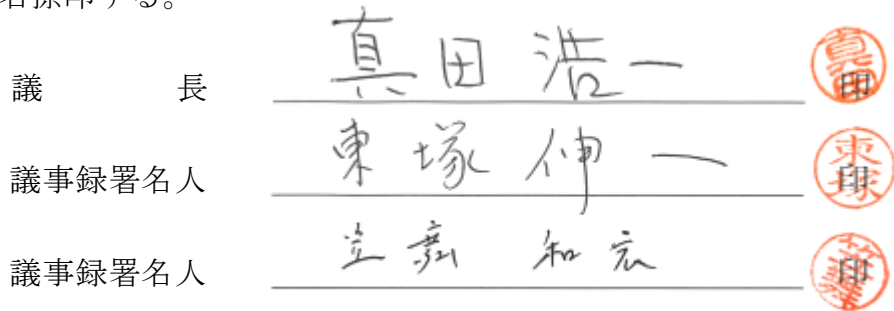 名捺印する。
議 長 真田浩一 真田 印
議事録署名人 東塚伸一 東塚 印
議事録署名人 和宏 印